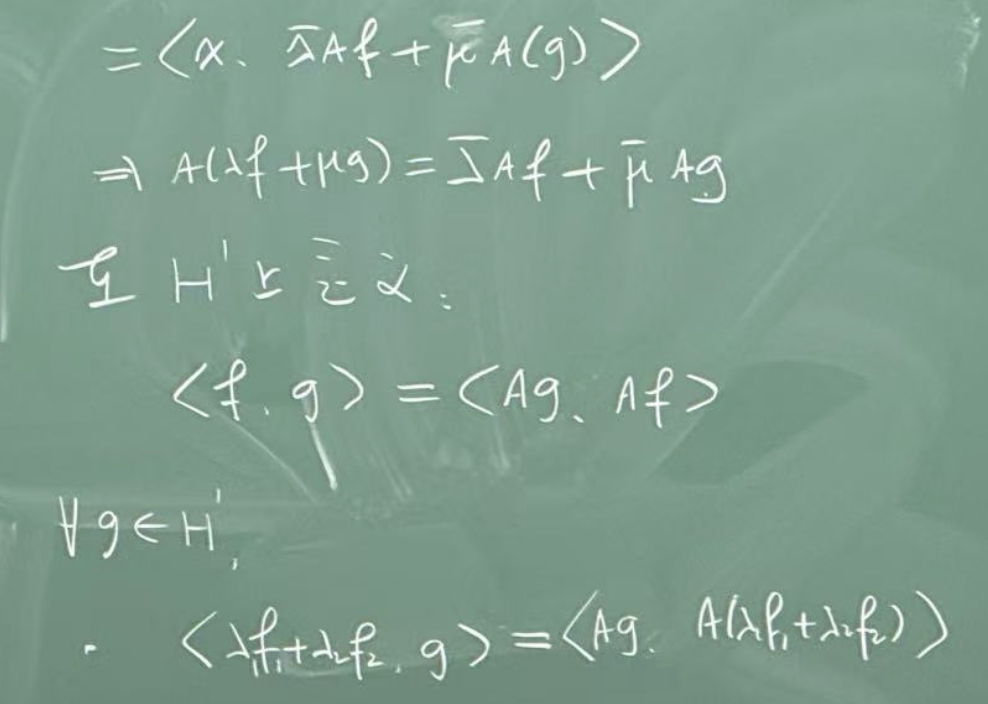 =<x、λ̄Af+μ̄A(g)>
⇒ A(λf+μg)=λ̄Af+μ̄Ag
在 H'上定义:
<f、g>=<Ag、Af>
∀g∈H',
· <λ₁f₁+λ₂f₂、g>=<Ag、A(λ₁f₁+λ₂f₂)>